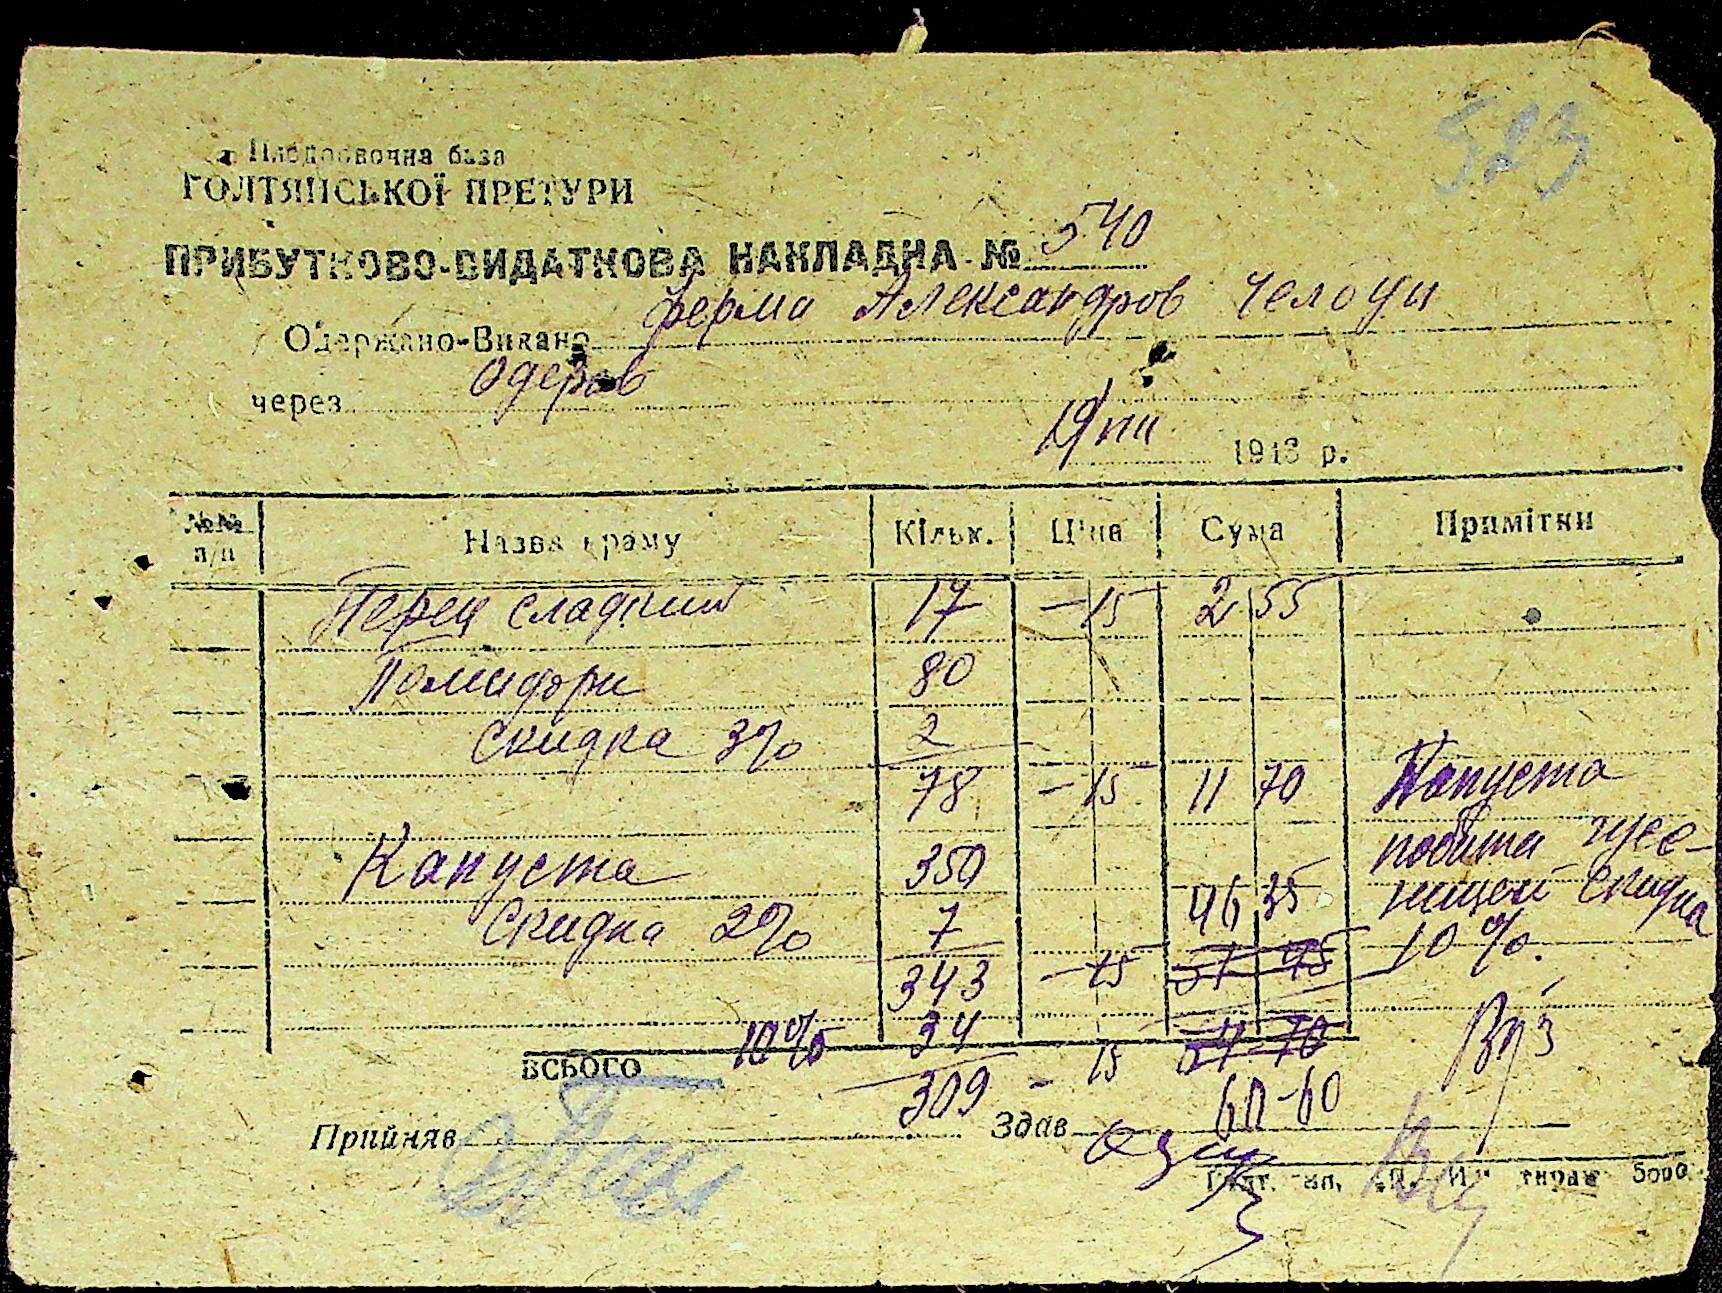 523
Плодоовочна база
ГОЛТЯНСЬКОЇ ПРЕТУРИ
ПРИБУТКОВО-ВИДАТКОВА НАКЛАДНА № 540
Одержано-Видано ферми Александров
через Одеров
19/VIII 1943 р.
№№ п/п Назва краму Кільк. Ціна Сума Примітки
Перец сладкий 17 -15 2 55
Помидори 80
Скидка 3% 2
78 -15 11 70 Капуста
Капуста 350 побита гусе-
46 35 ницей скидка
Скидка 2% 7 10%.
343 -15 51 45
ВСЬОГО 10% 34
309 - 15 60-60
Прийняв Здав
тираж 5000